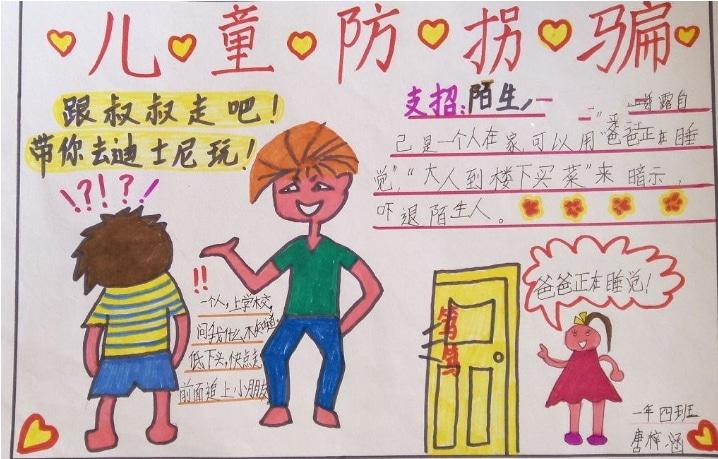 儿童防拐骗
跟叔叔走吧！
带你去迪士尼玩！
！？！？！
支招：陌生
露自
己是一个人在家，可以用“爸爸正在睡
觉”，“大人到楼下买菜”来暗示，
吓退陌生人。
！！
一个人，上学校，
问我什么不知道，
低下头，快点走，
前面追上小朋友
笃笃
爸爸正在睡觉！
一年四班
唐梓涵